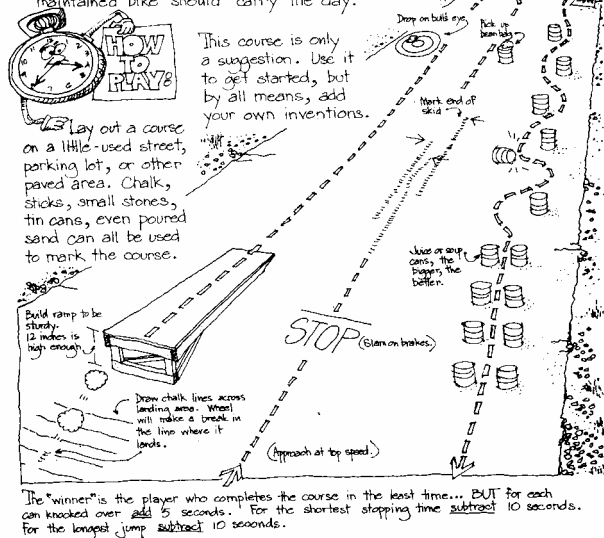 maintained bike should carry the day.
HOW
TO
PLAY:
This course is only
a suggestion. Use it
to get started, but
by all means, add
your own inventions.
Lay out a course
on a little-used street,
parking lot, or other
paved area. Chalk,
sticks, small stones,
tin cans, even poured
sand can all be used
to mark the course.
Drop on bulls eye
Pick up
bean bag
Mark end of
skid
Juice or soup
cans, the
bigger, the
better.
Build ramp to be
sturdy.
12 inches is
high enough.
STOP
(Slam on brakes.)
Draw chalk lines across
landing area. Wheel
will make a break in
the line where it
lands.
(Approach at top speed.)
The "winner" is the player who completes the course in the least time... BUT for each
can knocked over add 5 seconds. For the shortest stopping time subtract 10 seconds.
For the longest jump subtract 10 seconds.